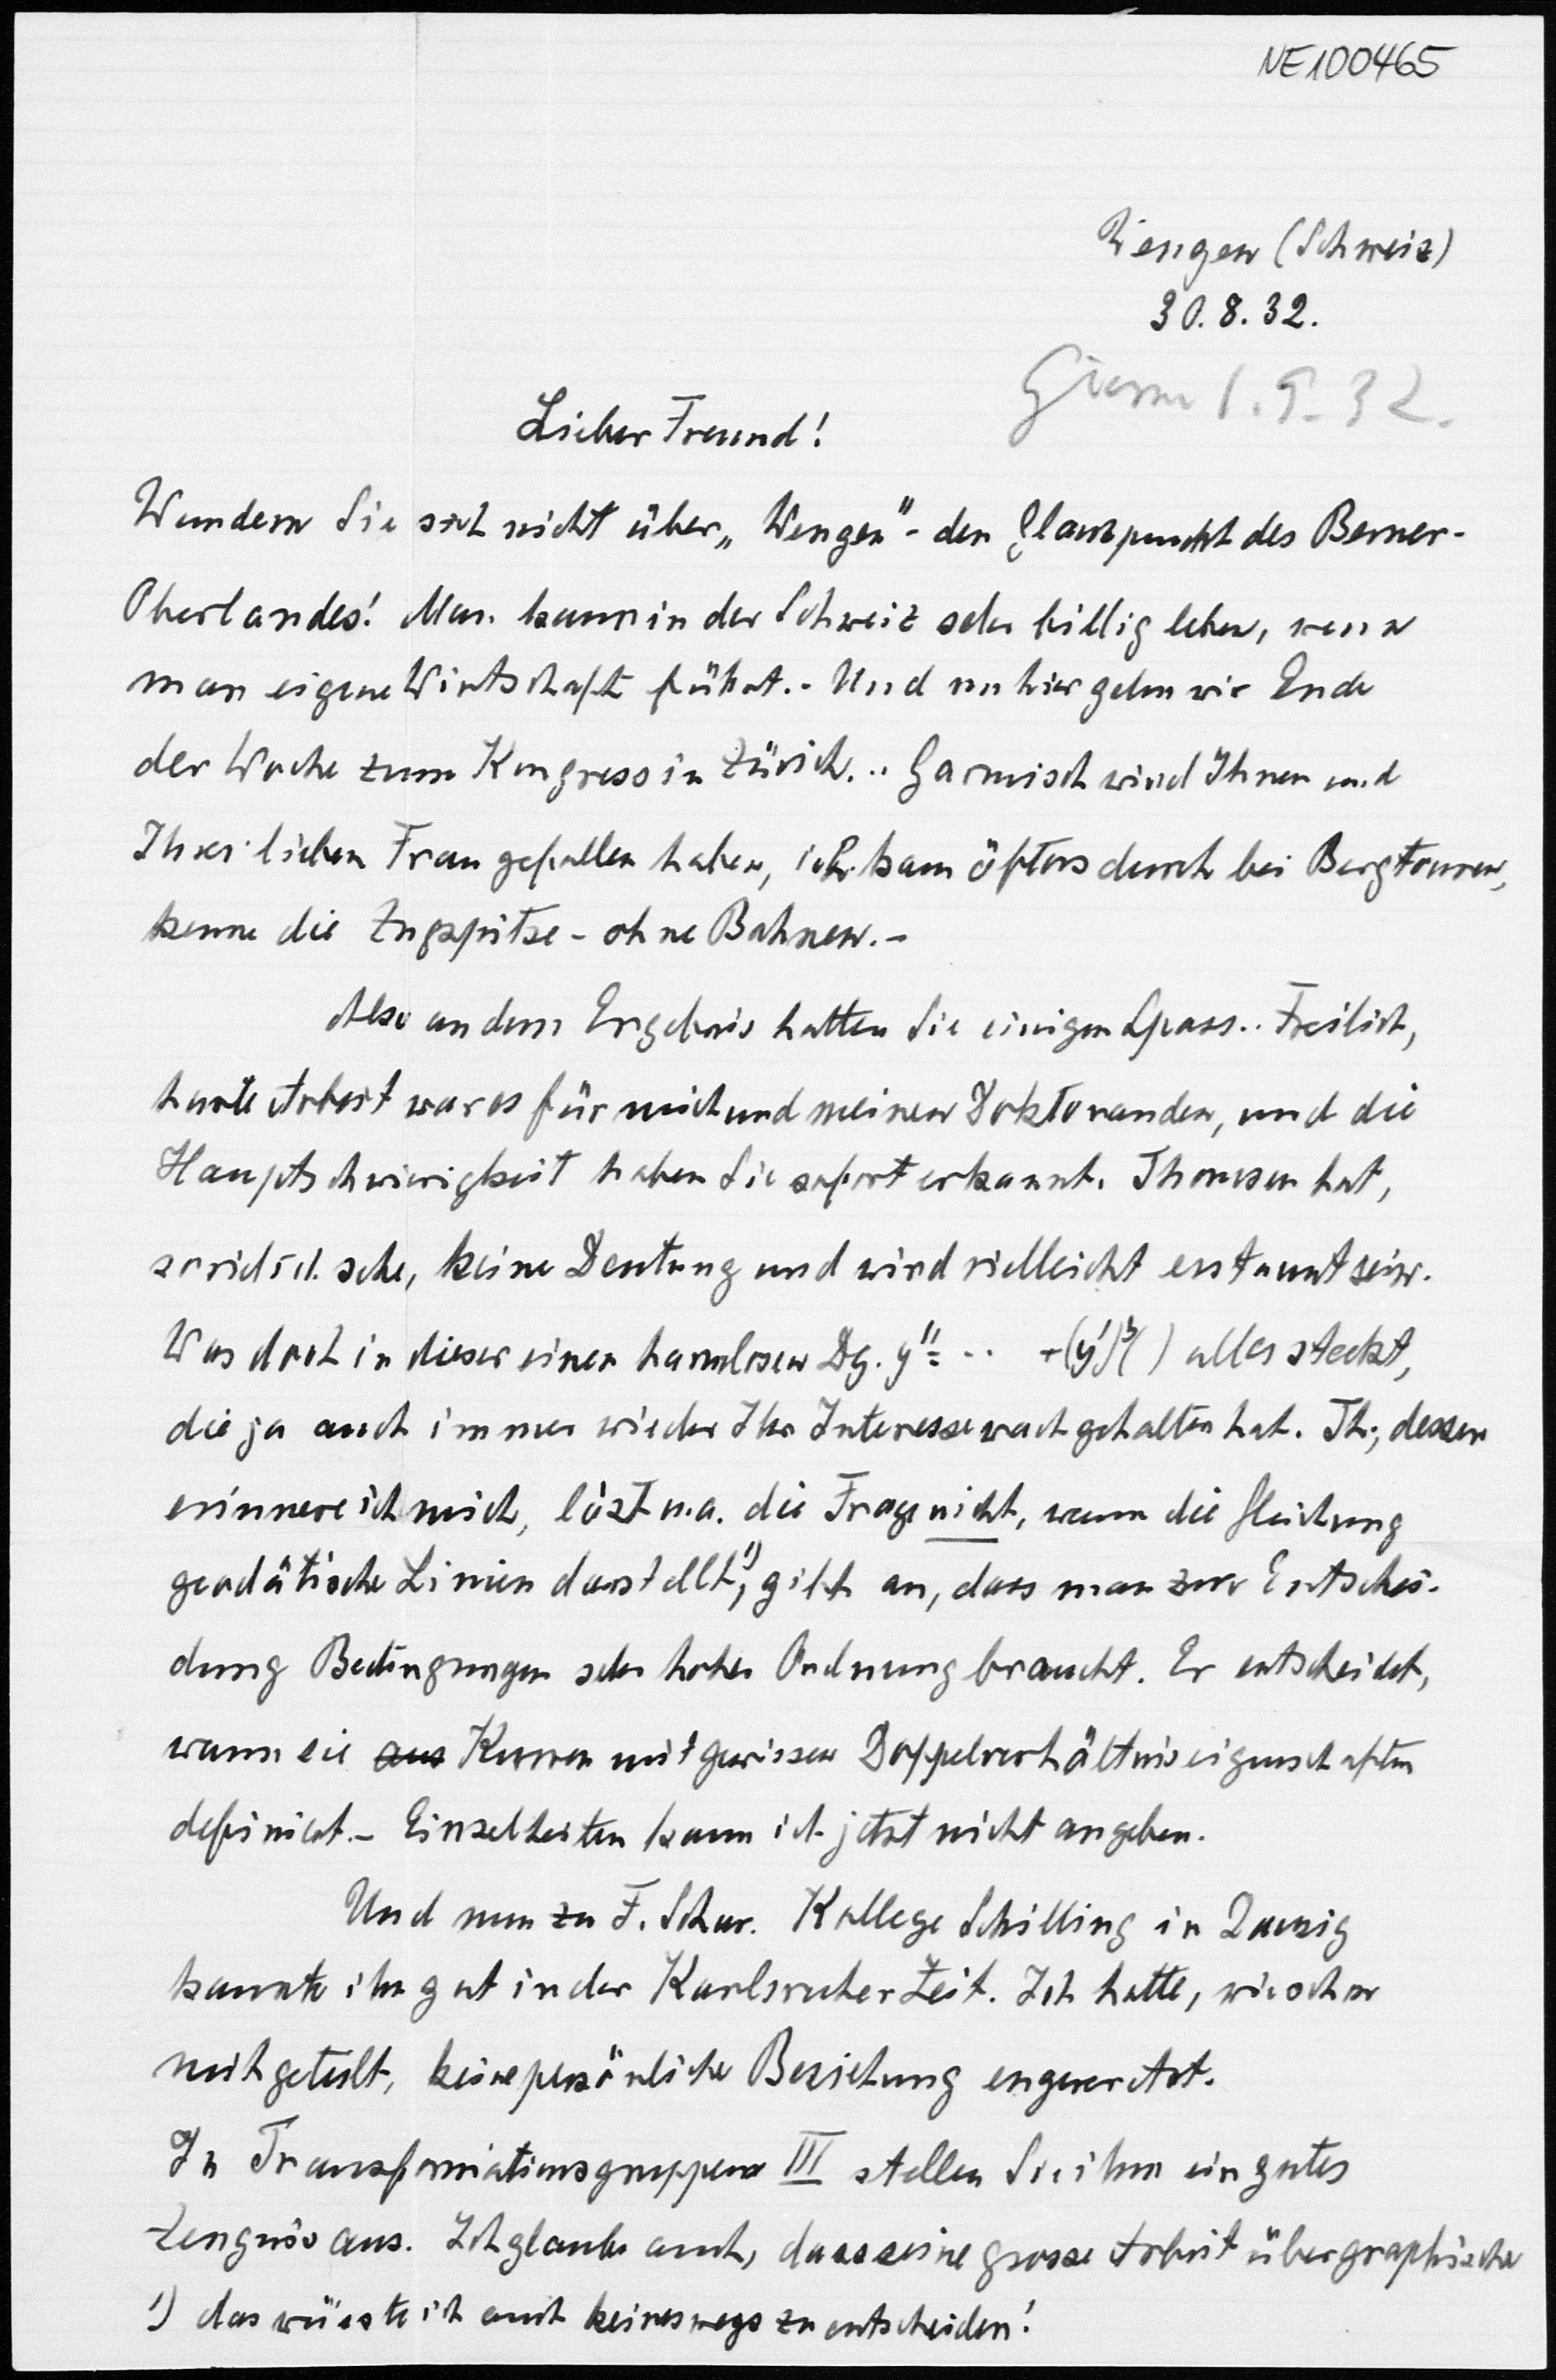 NE100465
Wengen (Schweiz)
30.8.32.
1.9.32.
Lieber Freund!
Wundern Sie sich nicht über „Wengen" - den Glanzpunkt des Berner-
Oberlandes! Man kann in der Schweiz sehr billig leben, wenn
man eigene Wirtschaft führt. - Und von hier gehen wir Ende
der Woche zum Kongress in Zürich. .. Garmisch wird Ihnen und
Ihrer lieben Frau gefallen haben, ich kam öfters durch bei Bergtouren,
kenne die Zugspitze - ohne Bahnen. -
Also an dem Ergebnis hatten Sie einigen Spass.. Freilich,
harte Arbeit war es für mich und meinen Doktoranden, und die
Hauptschwierigkeit haben Sie sofort erkannt. Thomsen hat,
soviel ich sehe, keine Deutung und wird vielleicht erstaunt sein.
Was doch in dieser einen harmlosen Dg. y'' = .. +(y')³( ) alles steckt,
die ja auch immer wieder Ihr Interesse wach gehalten hat. Th., dessen
erinnere ich mich, löst u.a. die Frage nicht, wann die Gleichung
geodätische Linien darstellt¹⁾, gibt an, dass man zur Entschei-
dung Bedingungen sehr hoher Ordnung braucht. Er entscheidet,
wann sie aus Kurven mit gewissen Doppelverhältniseigenschaften
definiert. - Einzelheiten kann ich jetzt nicht angeben.
Und nun zu F. Schur. Kollege Schilling in Danzig
kannte ihn gut in der Karlsruher Zeit. Ich hatte, wie schon
mitgeteilt, keine persönliche Beziehung engerer Art.
In Transformationsgruppen III stellen Sie ihm ein gutes
Zeugnis aus. Ich glaube auch, dass seine grosse Arbeit über graphische
1) das wüsste ich auch keineswegs zu entscheiden!